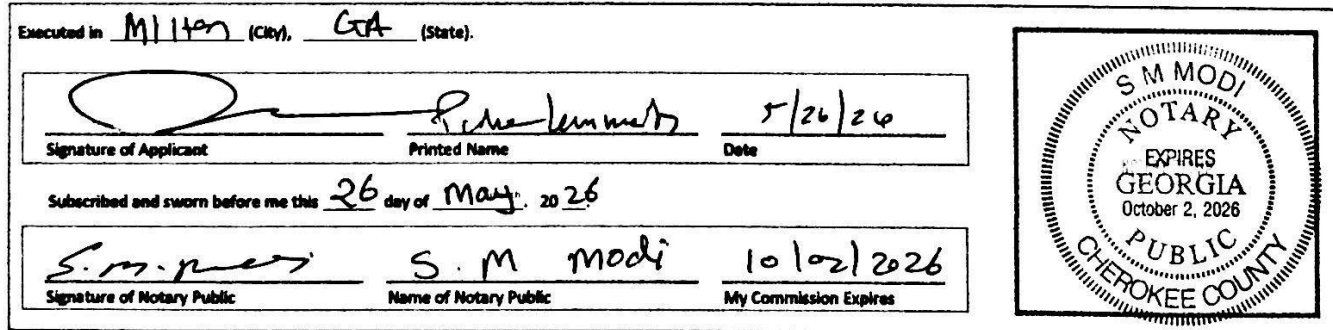 Executed in Milton (City), GA (State).
5/26/26
Signature of Applicant Printed Name Date
Subscribed and sworn before me this 26 day of May, 20 26
S. M Modi 10/02/2026
Signature of Notary Public Name of Notary Public My Commission Expires
S M MODI
NOTARY
EXPIRES
GEORGIA
October 2, 2026
PUBLIC
CHEROKEE COUNTY